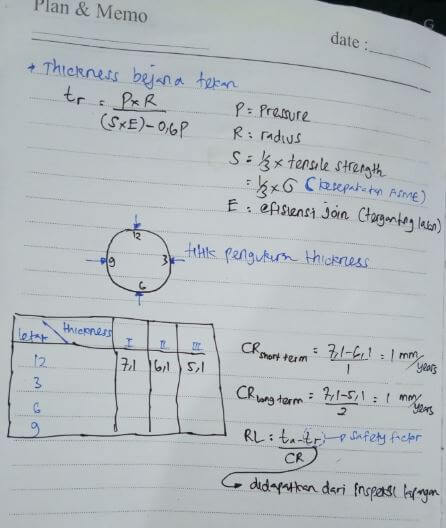 Plan & Memo
date :
G
* Thickness bejana tekan
tr = P×R / (S×E)-0,6P
P = Pressure
R = radius
S = 1/3 × tensile strength
= 1/3 × σ (kesepakatan ASME)
E = efisiensi join (tergantung lasan)
12
9
3
6
titik pengukuran thickness
letak
thickness
I II III
12 7,1 6,1 5,1
3
6
9
CR short term = 7,1-6,1 / 1 = 1 mm/years
CR long term = 7,1-5,1 / 2 = 1 mm/years
RL = ta-tr / CR → safety factor
didapatkan dari inspeksi lapangan